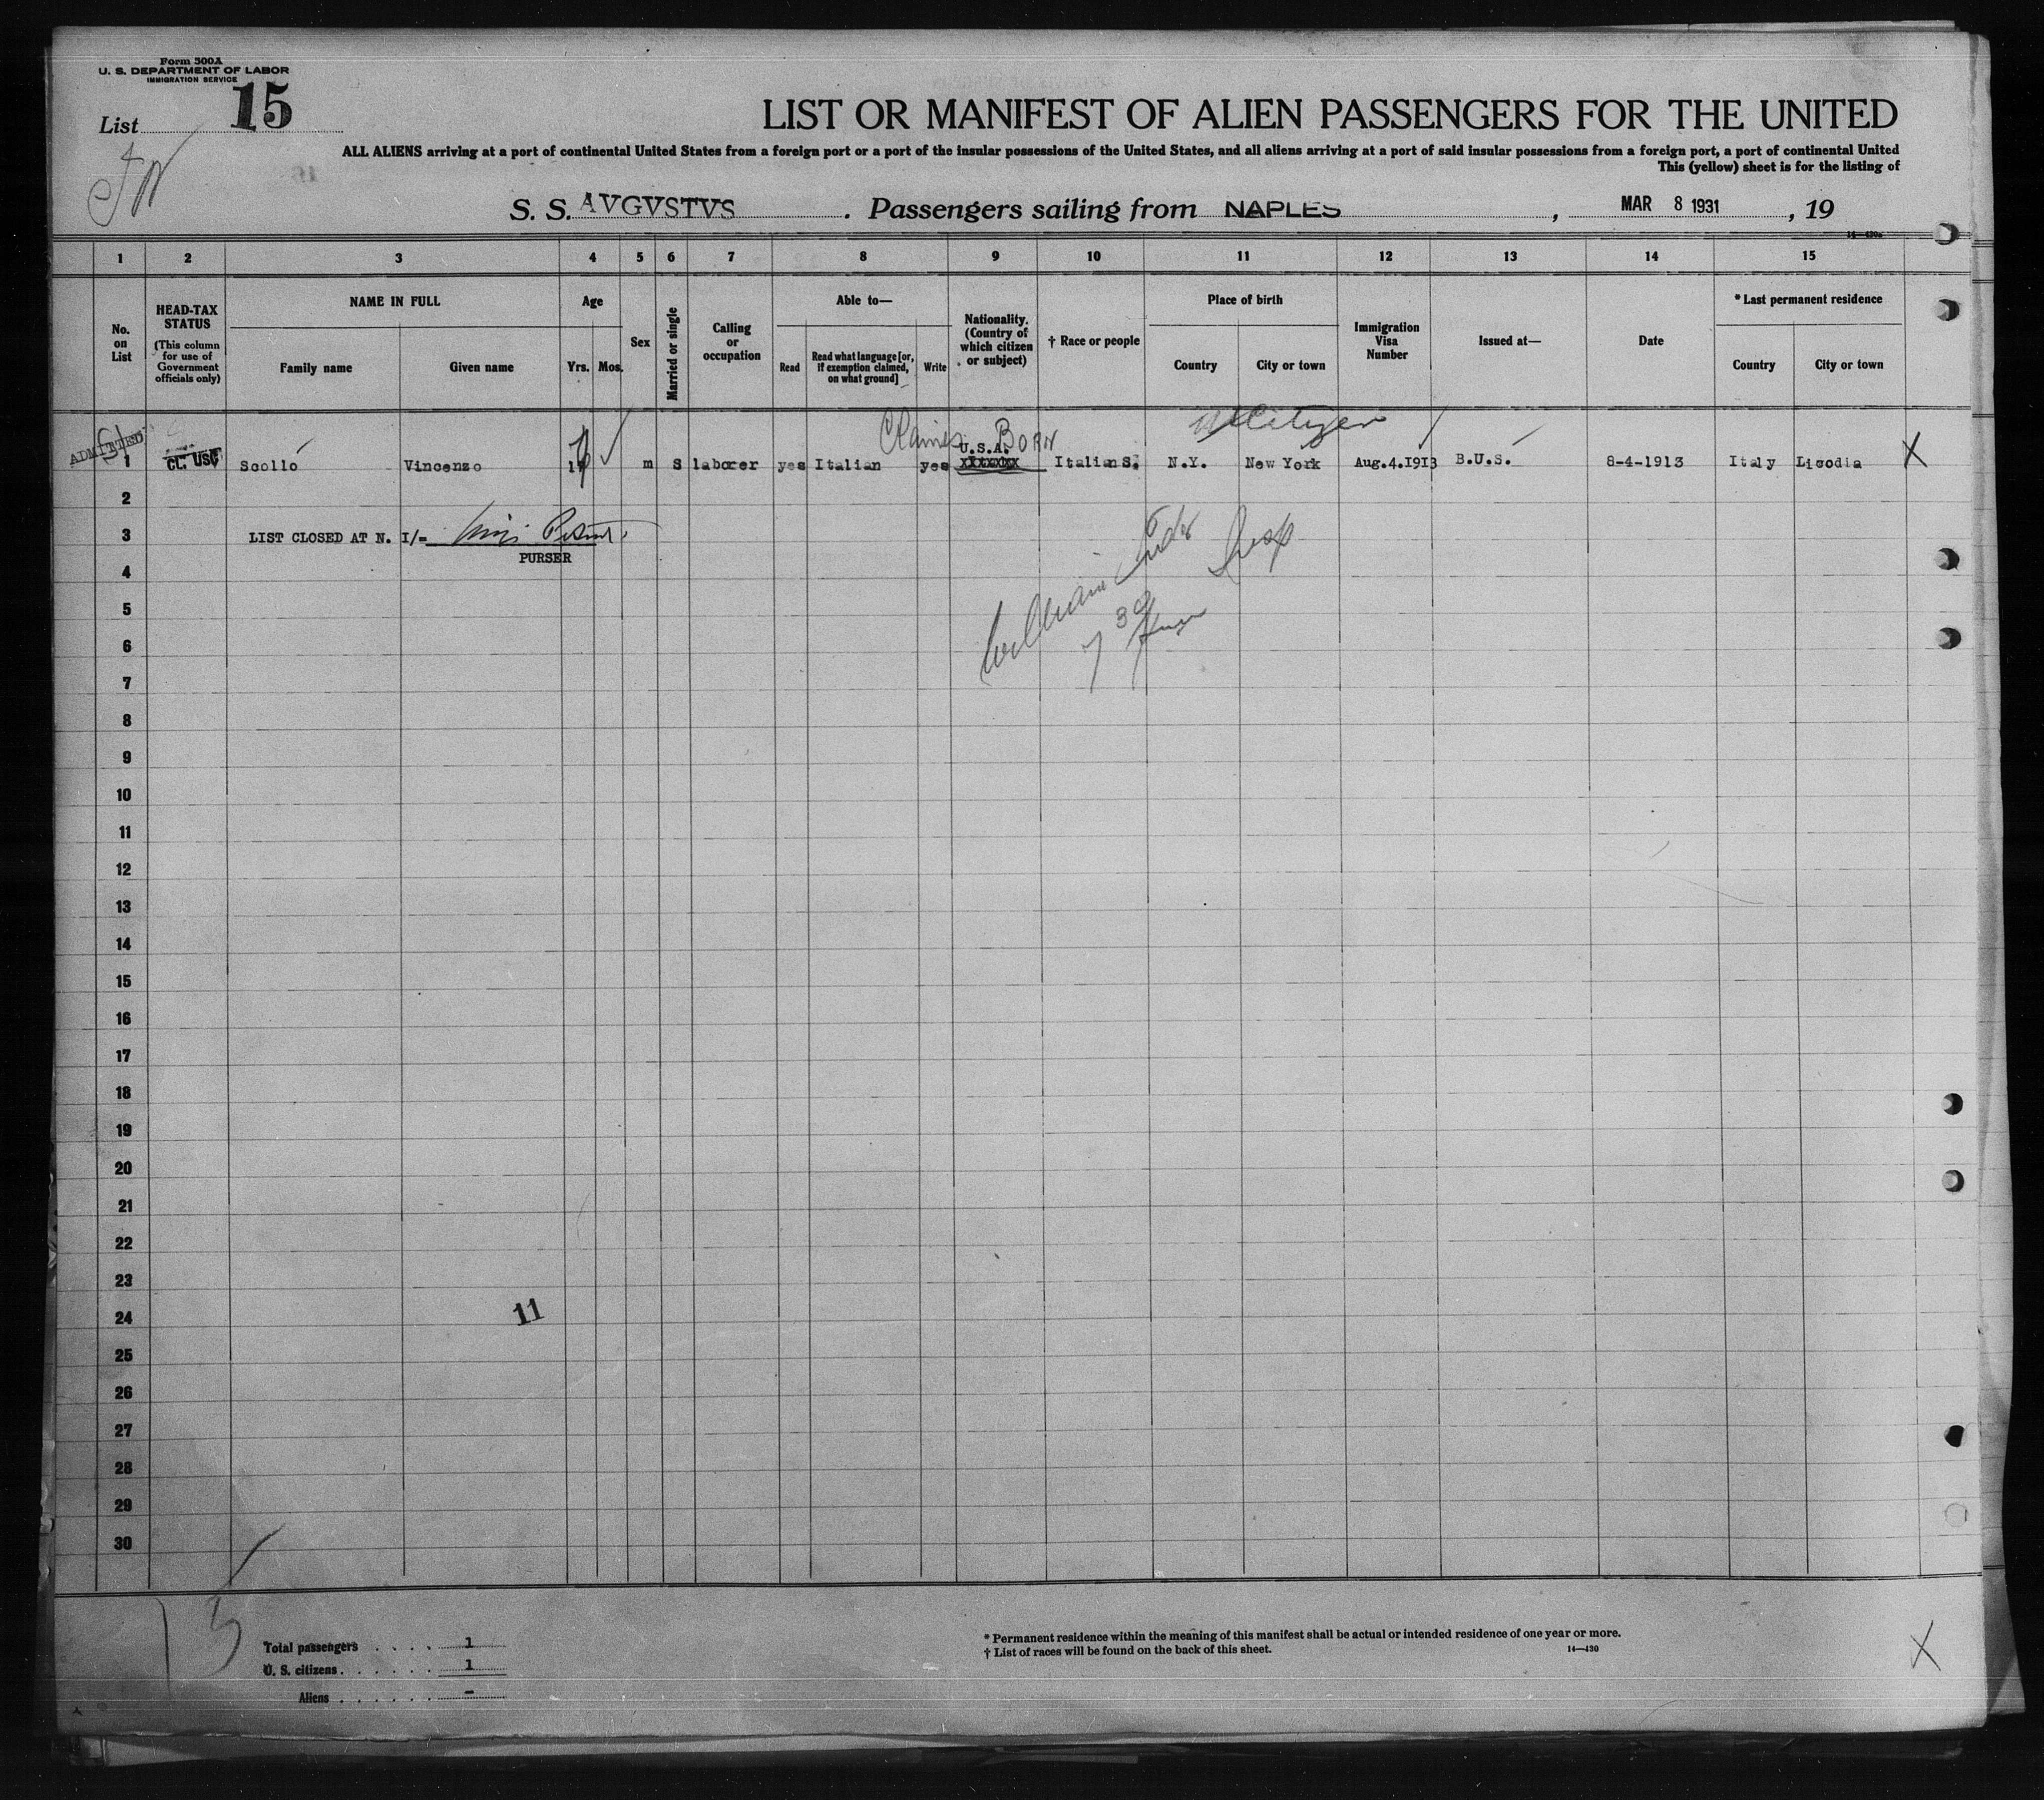 Form 500A
U. S. DEPARTMENT OF LABOR
IMMIGRATION SERVICE
List 15
LIST OR MANIFEST OF ALIEN PASSENGERS FOR THE UNITED
ALL ALIENS arriving at a port of continental United States from a foreign port or a port of the insular possessions of the United States, and all aliens arriving at a port of said insular possessions from a foreign port, a port of continental United
This (yellow) sheet is for the listing of
S. S. AVGVSTVS . Passengers sailing from NAPLES , MAR 8 1931 , 19
14—430a
1 2 3 4 5 6 7 8 9 10 11 12 13 14 15
No. on List
HEAD-TAX STATUS
(This column for use of Government officials only)
NAME IN FULL
Family name
Given name
Age
Yrs.
Mos.
Sex
Married or single
Calling or occupation
Able to—
Read
Read what language [or, if exemption claimed, on what ground]
Write
Nationality. (Country of which citizen or subject)
† Race or people
Place of birth
Country
City or town
Immigration Visa Number
Issued at—
Date
* Last permanent residence
Country
City or town
ADMITTED
Claims Born
U.S.A.
1 CT. USC Scollo Vincenzo m S laborer yes Italian yes XXXXXX Italian S. N.Y. New York Aug.4.1913 B.U.S. 8-4-1913 Italy Licodia X
2
3 LIST CLOSED AT N. I/=
PURSER
4
5
6
7
8
9
10
11
12
13
14
15
16
17
18
19
20
21
22
23
24
11
25
26
27
28
29
30
Total passengers . . . . 1
U. S. citizens . . . . . . 1
Aliens . . . . . . –
* Permanent residence within the meaning of this manifest shall be actual or intended residence of one year or more.
† List of races will be found on the back of this sheet.
14—430
X